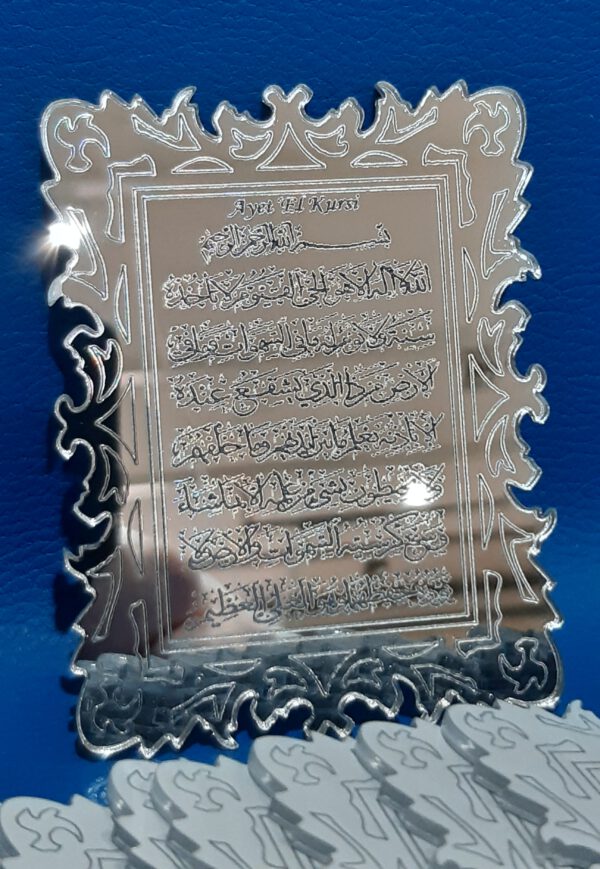 Ayet El Kursi
بسم الله الرحمن الرحيم
الله لا اله الا هو الحي القيوم لا تأخذه
سنة ولا نوم له ما في السموات وما في
الارض من ذا الذي يشفع عنده
الا باذنه يعلم ما بين ايديهم وما خلفهم
ولا يحيطون بشيء من علمه الا بما شاء
وسع كرسيه السموات والارض ولا
يؤده حفظهما وهو العلي العظيم